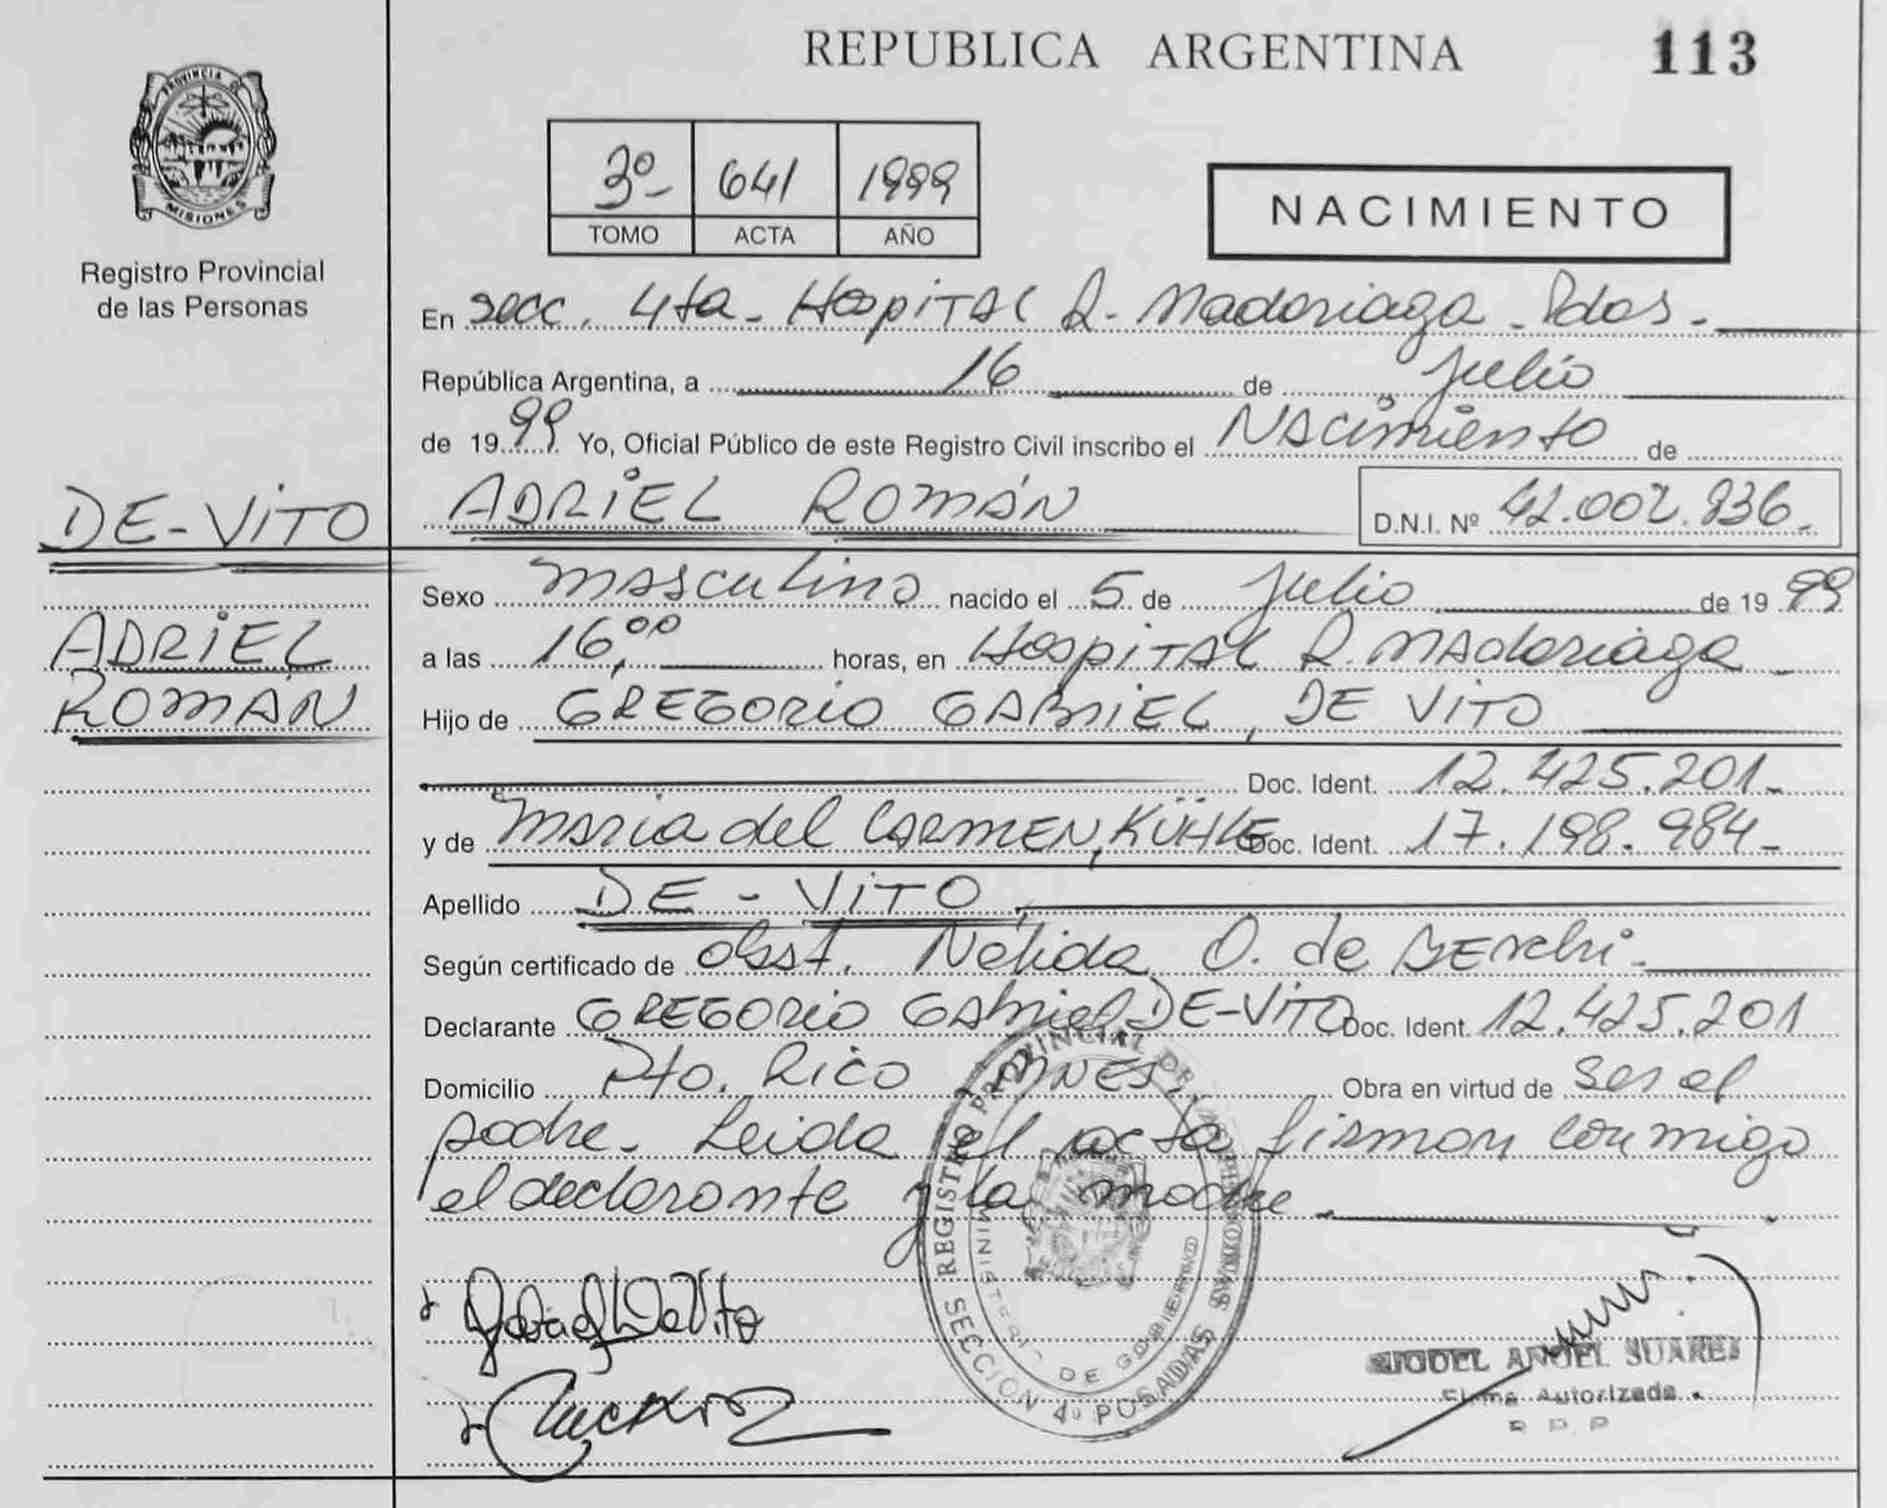 REPUBLICA ARGENTINA
113
PROVINCIA DE
MISIONES
Registro Provincial
de las Personas
3º 641 1999
TOMO ACTA AÑO
NACIMIENTO
En secc. 4ta- Hospital R. Madariaga - Pdas.-
República Argentina, a 16 de Julio
de 1999 Yo, Oficial Público de este Registro Civil inscribo el Nacimiento de
DE-VITO
ADRIEL ROMÁN D.N.I. Nº 42.002.836.-
Sexo masculino nacido el 5 de Julio de 1999
ADRIEL
ROMÁN
a las 16,00 horas, en Hospital R. Madariaga
Hijo de GREGORIO GABRIEL, DE VITO
Doc. Ident. 12.425.201-
y de Maria del CARMEN, KÜHLE Doc. Ident. 17.198.984-
Apellido DE-VITO
Según certificado de obst. Nélida O. de
Declarante GREGORIO GABRIEL DE-VITO Doc. Ident 12.425.201
Domicilio Pto. Rico MNES. Obra en virtud de ser el
padre. Leida el acta firman conmigo
el declarante y la madre.
REGISTRO PROVINCIAL DE LAS PERSONAS
MINISTERIO DE GOBIERNO
SECCION 4º POSADAS
MIGUEL ANGEL SUAREZ
Firma Autorizada
R P P